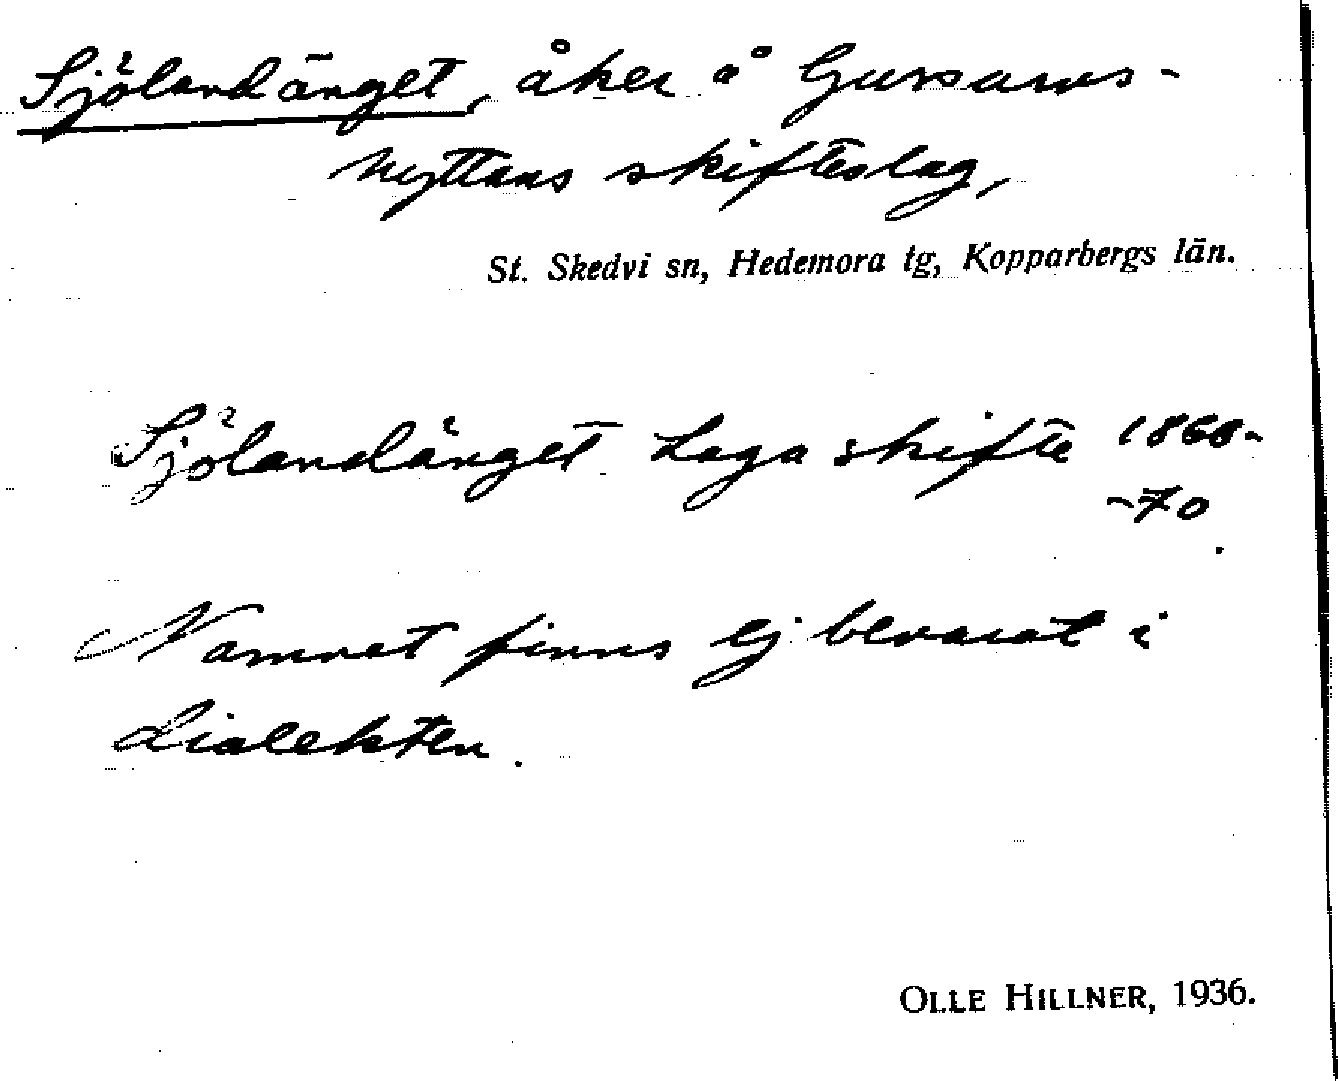 Sjölandänget, åker å Gussarvs-
Nyttans skifteslag,
St. Skedvi sn, Hedemora tg, Kopparbergs län.
Sjölandänget Laga skifte 1868-
-70.
Namnet finns ej bevarat i
dialekten.
OLLE HILLNER, 1936.